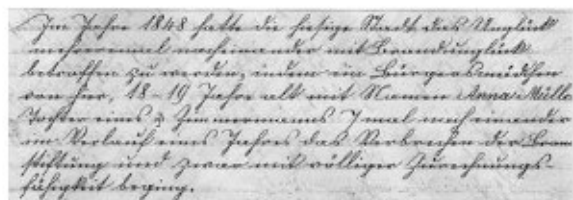 Im Jahre 1848 hatte die hiesige Stadt das Unglück
mehreremal nacheinander mit Brandunglück
betroffen zu werden, indem ein Bürgersmädchen
von hier, 18-19 Jahre alt mit Namen Anna Mülle
Tochter eines Zimmermanns 7 mal nacheinander
im Verlauf eines Jahres das Verbrechen der Bran
stiftung und zwar mit völliger Zurechnungs-
fähigkeit beging.